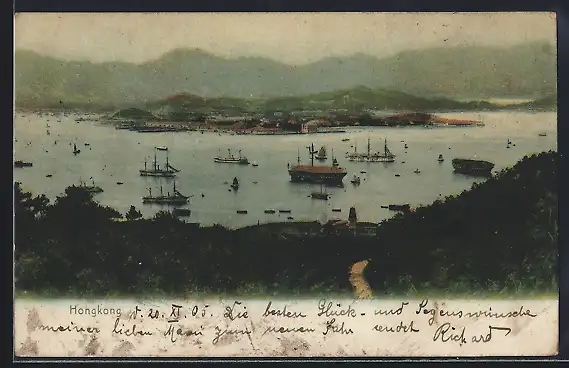 Hongkong d. 20. XI. 05. Die besten Glück- und Segenswünsche
meiner lieben Mami zum neuen Jahr sendet Richard